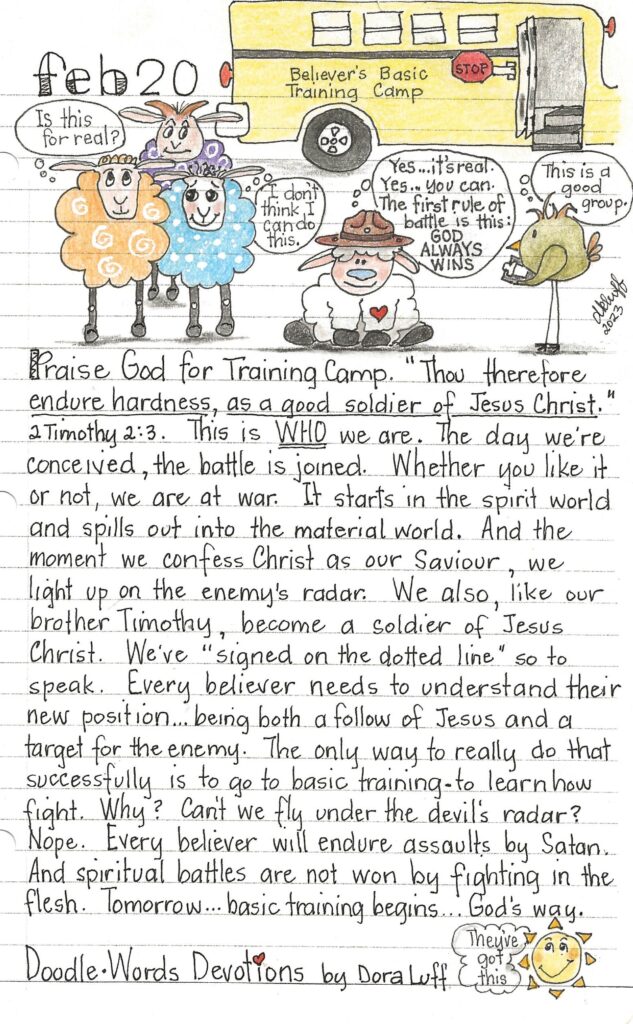 feb 20
Believer's Basic
Training Camp
STOP
Is this
for real?
I don't
think I
can do
this.
Yes...it's real.
Yes... you can.
The first rule of
battle is this:
GOD
ALWAYS
WINS
This is a
good
group.
dbluff
2023
Praise God for Training Camp. "Thou therefore
endure hardness, as a good soldier of Jesus Christ."
2 Timothy 2:3. This is WHO we are. The day we're
conceived, the battle is joined. Whether you like it
or not, we are at war. It starts in the spirit world
and spills out into the material world. And the
moment we confess Christ as our Saviour, we
light up on the enemy's radar. We also, like our
brother Timothy, become a soldier of Jesus
Christ. We've "signed on the dotted line" so to
speak. Every believer needs to understand their
new position...being both a follow of Jesus and a
target for the enemy. The only way to really do that
successfully is to go to basic training-to learn how
fight. Why? Can't we fly under the devil's radar?
Nope. Every believer will endure assaults by Satan.
And spiritual battles are not won by fighting in the
flesh. Tomorrow...basic training begins...God's way.
They've
got
this
Doodle•Words Devotions by Dora Luff